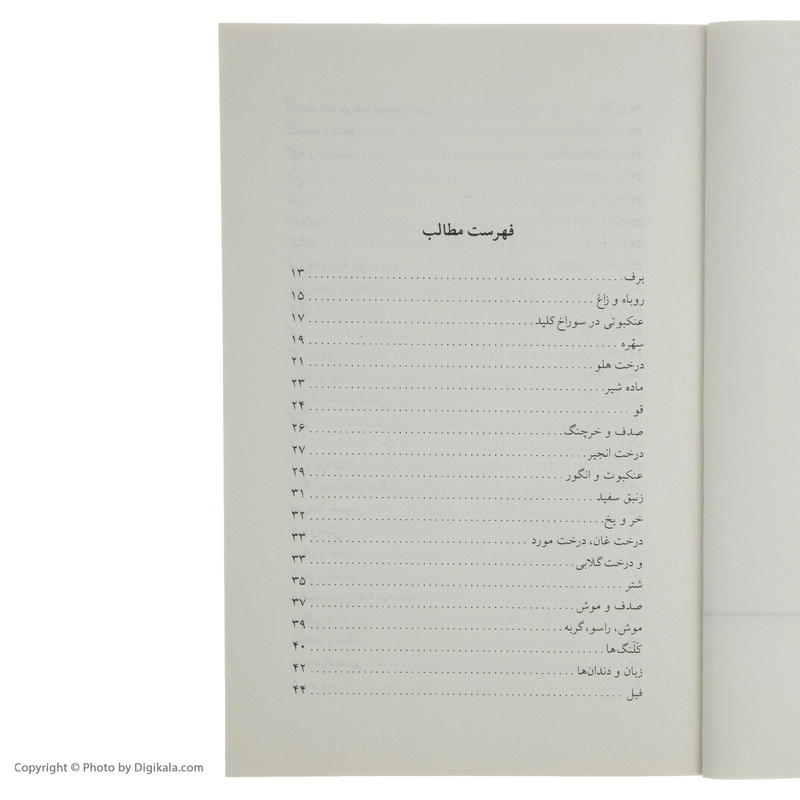 فهرست مطالب
برف ........ ۱۳
روباه و زاغ ........ ۱۵
عنکبوتی در سوراخ کلید ........ ۱۷
سِهْره ........ ۱۹
درخت هلو ........ ۲۱
ماده شیر ........ ۲۳
قو ........ ۲۴
صدف و خرچنگ ........ ۲۶
درخت انجیر ........ ۲۷
عنکبوت و انگور ........ ۲۹
زنبق سفید ........ ۳۱
خر و یخ ........ ۳۲
درخت غان، درخت مورد ........ ۳۳
و درخت گلابی ........ ۳۳
شتر ........ ۳۵
صدف و موش ........ ۳۷
موش، راسو، گربه ........ ۳۹
کُلَنگ‌ها ........ ۴۰
زبان و دندان‌ها ........ ۴۲
فیل ........ ۴۴
Copyright © Photo by Digikala.com